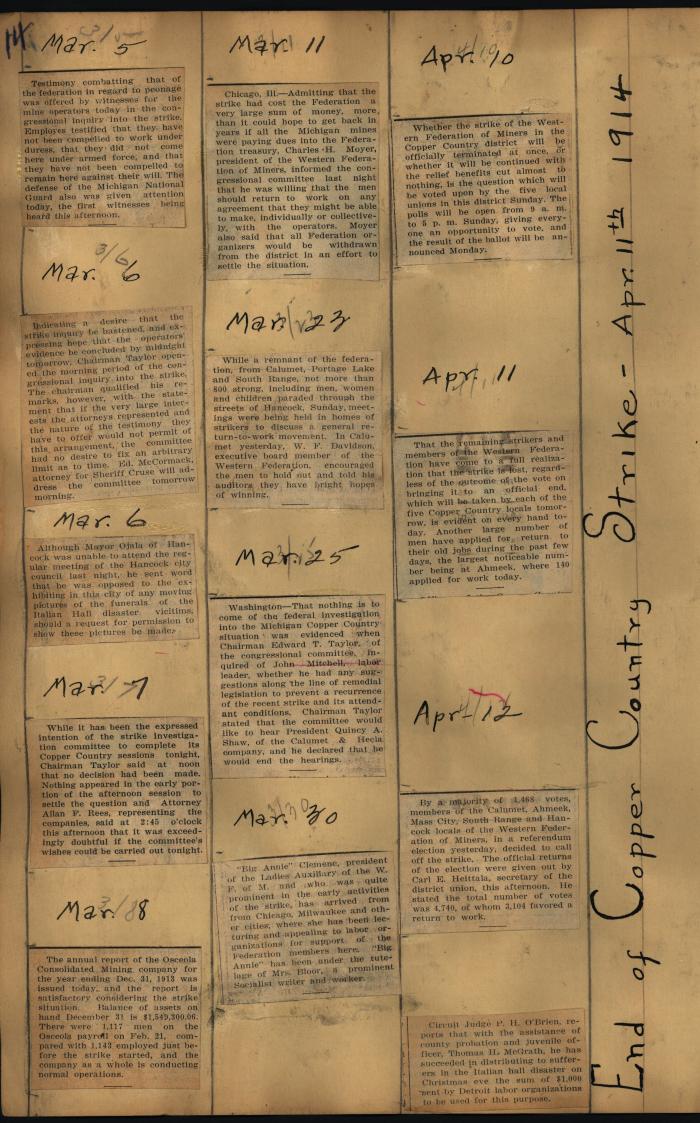 14
Mar. 5
Testimony combatting that of
the federation in regard to peonage
was offered by witnesses for the
mine operators today in the con-
gressional inquiry into the strike.
Employes testified that they have
not been compelled to work under
duress, that they did not come
here under armed force, and that
they have not been compelled to
remain here against their will. The
defense of the Michigan National
Guard also was given attention
today, the first witnesses being
heard this afternoon.
3/6/
Mar. 6
Indicating a desire that the
strike inquiry be hastened, and ex-
pressing hope that the operators'
evidence be concluded by midnight
tomorrow, Chairman Taylor open-
ed the morning period of the con-
gressional inquiry into the strike.
The chairman qualified his re-
marks, however, with the state-
ment that if the very large inter-
ests the attorneys represented and
the nature of the testimony they
have to offer would not permit of
this arrangement, the committee
had no desire to fix an arbitrary
limit as to time. Ed. McCormack,
attorney for Sheriff Cruse will ad-
dress the committee tomorrow
morning.
Mar. 6
Although Mayor Ojala of Han-
cock was unable to attend the reg-
ular meeting of the Hancock city
council last night, he sent word
that he was opposed to the ex-
hibiting in this city of any moving
pictures of the funerals of the
Italian Hall disaster vicitims,
should a request for permission to
show these pictures be made.
Mar. 7
While it has been the expressed
intention of the strike investiga-
tion committee to complete its
Copper Country sessions tonight,
Chairman Taylor said at noon
that no decision had been made.
Nothing appeared in the early por-
tion of the afternoon session to
settle the question and Attorney
Allan F. Rees, representing the
companies, said at 2:45 o'clock
this afternoon that it was exceed-
ingly doubtful if the committee's
wishes could be carried out tonight.
Mar. 8
The annual report of the Osceola
Consolidated Mining company for
the year ending Dec. 31, 1913 was
issued today, and the report is
satisfactory considering the strike
situation. Balance of assets on
hand December 31 is $1,549,300.06.
There were 1,117 men on the
Osceola payroll on Feb. 21, com-
pared with 1,143 employed just be-
fore the strike started, and the
company as a whole is conducting
normal operations.
Mar. 11
Chicago, Ill.—Admitting that the
strike had cost the Federation a
very large sum of money, more,
than it could hope to get back in
years if all the Michigan mines
were paying dues into the Federa-
tion treasury, Charles H. Moyer,
president of the Western Federa-
tion of Miners, informed the con-
gressional committee last night
that he was willing that the men
should return to work on any
agreement that they might be able
to make, individually or collective-
ly, with the operators. Moyer
also said that all Federation or-
ganizers would be withdrawn
from the district in an effort to
settle the situation.
Mar. 23
While a remnant of the federa-
tion, from Calumet, Portage Lake
and South Range, not more than
800 strong, including men, women
and children paraded through the
streets of Hancock, Sunday, meet-
ings were being held in homes of
strikers to discuss a general re-
turn-to-work movement. In Calu-
met yesterday, W. F. Davidson,
executive board member of the
Western Federation, encouraged
the men to hold out and told his
auditors they have bright hopes
of winning.
Mar. 25
Washington—That nothing is to
come of the federal investigation
into the Michigan Copper Country
situation was evidenced when
Chairman Edward T. Taylor, of
the congressional committee, in-
quired of John Mitchell, labor
leader, whether he had any sug-
gestions along the line of remedial
legislation to prevent a recurrence
of the recent strike and its attend-
ant conditions. Chairman Taylor
stated that the committee would
like to hear President Quincy A.
Shaw, of the Calumet & Hecla
company, and he declared that he
would end the hearings.
Mar. 30
"Big Annie" Clemenc, president
of the Ladies Auxiliary of the W.
F. of M. and who was quite
prominent in the early activities
of the strike, has arrived from
from Chicago, Milwaukee and oth-
er cities, where she has been lec-
turing and appealing to labor or-
ganizations for support of the
Federation members here. "Big
Annie" has been under the tute-
lage of Mrs. Bloor, a prominent
Socialist writer and worker.
Apr. 10
Whether the strike of the West-
ern Federation of Miners in the
Copper Country district will be
officially terminated at once, or
whether it will be continued with
the relief benefits cut almost to
nothing, is the question which will
be voted upon by the five local
unions in this district Sunday. The
polls will be open from 9 a. m.
to 5 p. m. Sunday, giving every-
one an opportunity to vote, and
the result of the ballot will be an-
nounced Monday.
Apr. 11
That the remaining strikers and
members of the Western Federa-
tion have come to a full realiza-
tion that the strike is lost, regard-
less of the outcome of the vote on
bringing it to an official end,
which will be taken by each of the
five Copper Country locals tomor-
row, is evident on every hand to-
day. Another large number of
men have applied for return to
their old jobs during the past few
days, the largest noticeable num-
ber being at Ahmeek, where 140
applied for work today.
Apr. 12
By a majority of 1,468 votes,
members of the Calumet, Ahmeek,
Mass City, South Range and Han-
cock locals of the Western Feder-
ation of Miners, in a referendum
election yesterday, decided to call
off the strike. The official returns
of the election were given out by
Carl E. Heittala, secretary of the
district union, this afternoon. He
stated the total number of votes
was 4,740, of whom 3,104 favored a
return to work.
Circuit Judge P. H. O'Brien, re-
ports that with the assistance of
county probation and juvenile of-
ficer, Thomas H. McGrath, he has
succeeded in distributing to suffer-
ers in the Italian hall disaster on
Christmas eve the sum of $1,000
sent by Detroit labor organizations
to be used for this purpose.
End of Copper Country Strike - Apr. 11th 1914